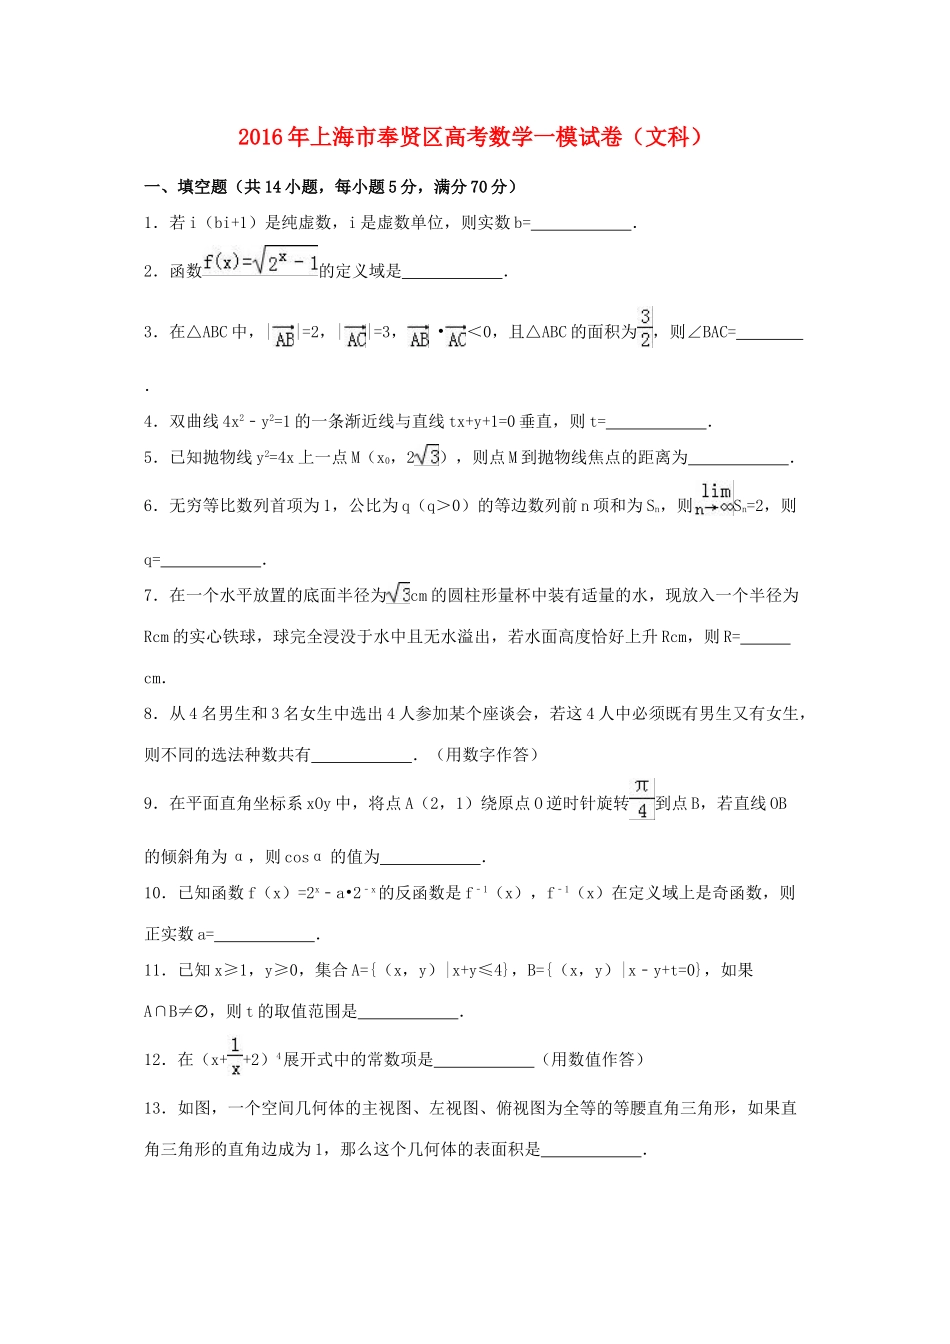 2016 年上海市奉贤区高考数学一模试卷（文科）
一、填空题（共 14 小题，每小题 5 分，满分 70 分）
1．若 i（bi+1）是纯虚数，i 是虚数单位，则实数 b=____________．
2．函数f(x)=√(2ˣ－1)的定义域是____________．
3．在△ABC 中，|AB→|=2，|AC→|=3，AB→•AC→＜0，且△ABC 的面积为3/2，则∠BAC=________
．
4．双曲线 4x²﹣y²=1 的一条渐近线与直线 tx+y+1=0 垂直，则 t=____________．
5．已知抛物线 y²=4x 上一点 M（x₀，2√3），则点 M 到抛物线焦点的距离为____________．
6．无穷等比数列首项为 1，公比为 q（q＞0）的等边数列前 n 项和为 Sₙ，则lim n→∞ Sₙ=2，则
q=____________．
7．在一个水平放置的底面半径为√3cm 的圆柱形量杯中装有适量的水，现放入一个半径为
Rcm 的实心铁球，球完全浸没于水中且无水溢出，若水面高度恰好上升 Rcm，则 R=______
cm．
8．从 4 名男生和 3 名女生中选出 4 人参加某个座谈会，若这 4 人中必须既有男生又有女生，
则不同的选法种数共有____________．（用数字作答）
9．在平面直角坐标系 xOy 中，将点 A（2，1）绕原点 O 逆时针旋转π/4到点 B，若直线 OB
的倾斜角为 α，则 cosα 的值为____________．
10．已知函数 f（x）=2ˣ﹣a•2⁻ˣ的反函数是 f⁻¹（x），f⁻¹（x）在定义域上是奇函数，则
正实数 a=____________．
11．已知 x≥1，y≥0，集合 A={（x，y）|x+y≤4}，B={（x，y）|x﹣y+t=0}，如果
A∩B≠∅，则 t 的取值范围是____________．
12．在（x+1/x+2）⁴展开式中的常数项是____________（用数值作答）
13．如图，一个空间几何体的主视图、左视图、俯视图为全等的等腰直角三角形，如果直
角三角形的直角边成为 1，那么这个几何体的表面积是____________．